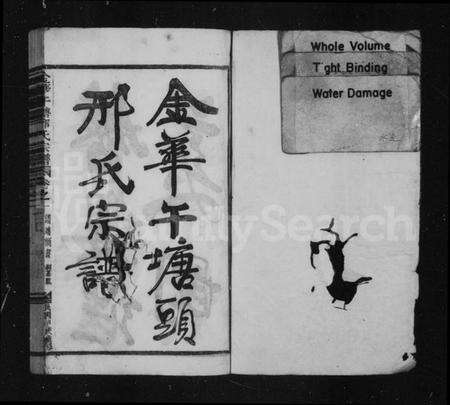 金華午塘頭
邢氏宗譜
Whole Volume
Tight Binding
Water Damage
FamilySearch